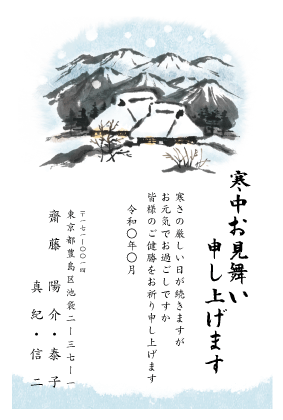 寒中お見舞い
申し上げます
寒さの厳しい日が続きますが
お元気でお過ごしですか
皆様のご健勝をお祈り申し上げます
令和〇年〇月
〒一七一-〇〇一四
東京都豊島区池袋二-三七-一
齋藤 陽介・泰子
真紀・信二